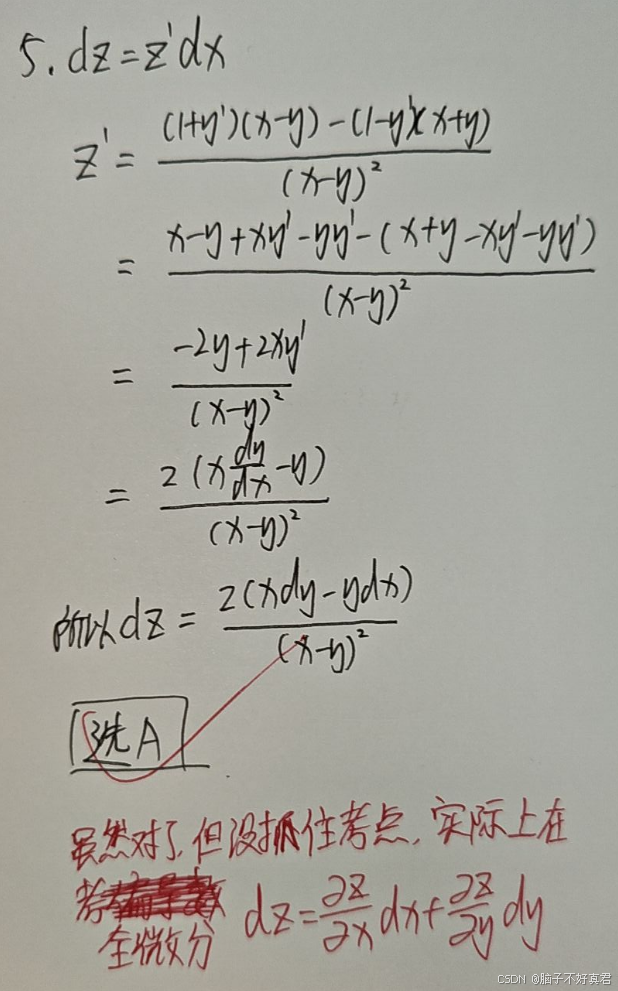 5. dz=z'dx
z' = \frac{(1+y')(x-y)-(1-y')(x+y)}{(x-y)^2}
= \frac{x-y+xy'-yy'-(x+y-xy'-yy')}{(x-y)^2}
= \frac{-2y+2xy'}{(x-y)^2}
= \frac{2(x\frac{dy}{dx}-y)}{(x-y)^2}
所以dz = \frac{2(xdy-ydx)}{(x-y)^2}
选A
虽然对了,但没抓住考点,实际上在
考
全微分 dz=\frac{∂z}{∂x}dx+\frac{∂z}{∂y}dy
CSDN @脑子不好真君